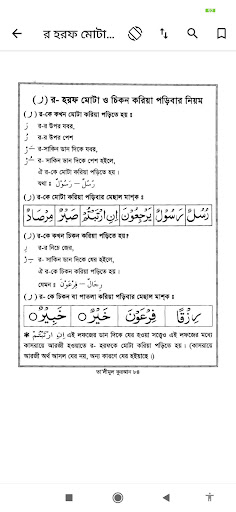 র হরফ মোটা...
( ر ) র- হরফ মোটা ও চিকন করিয়া পড়িবার নিয়ম
( ر ) র-কে কখন মোটা করিয়া পড়িতে হয় ঃ
رَ র-র উপর যবর,
رُ র-র উপর পেশ
র- সাকিন ডান দিকে যবর,
র- সাকিন ডান দিকে পেশ হইলে,
ঐ র-কে মোটা করিয়া পড়িতে হয়।
যথা ঃ رُسُلٌ – رَسُوْلٌ
( ر ) র-কে মোটা করিয়া পড়িবার মেছাল মাশ্ক ঃ
رُسُلٌ رَسُوْلٌ يَرْجِعُوْنَ اِنِ ارْتَبْتُمْ صَبْرٌ مِرْصَادٌ
( ر ) র-কে কখন চিকন করিয়া পড়িতে হয়?
رِ র-র নিচে জের,
র- সাকিন ডান দিকে যের হইলে,
ঐ র-কে চিকন করিয়া পড়িতে হয়।
যেমন ঃ رِجَالٌ – فِرْعَوْنَ
( ر ) র- কে চিকন বা পাতলা করিয়া পড়িবার মেছাল মাশ্ক ঃ
رِزْقًا فِرْعَوْنَ خَيْرٌ ○ خَبِيْرٌ ○
✱ اِنِ ارْتَبْتُمْ এই লফজের ডান দিকে যের হওয়া সত্ত্বেও এই লফজের মধ্যে
কাসরায়ে আরজী হওয়াতে র- হরফকে মোটা করিয়া পড়িতে হয়। (কাসরায়ে
আরজী অর্থ আসল যের নয়, অন্য কারণে যের হইয়াছে।)
তা'লীমুল কুরআন ৮৪